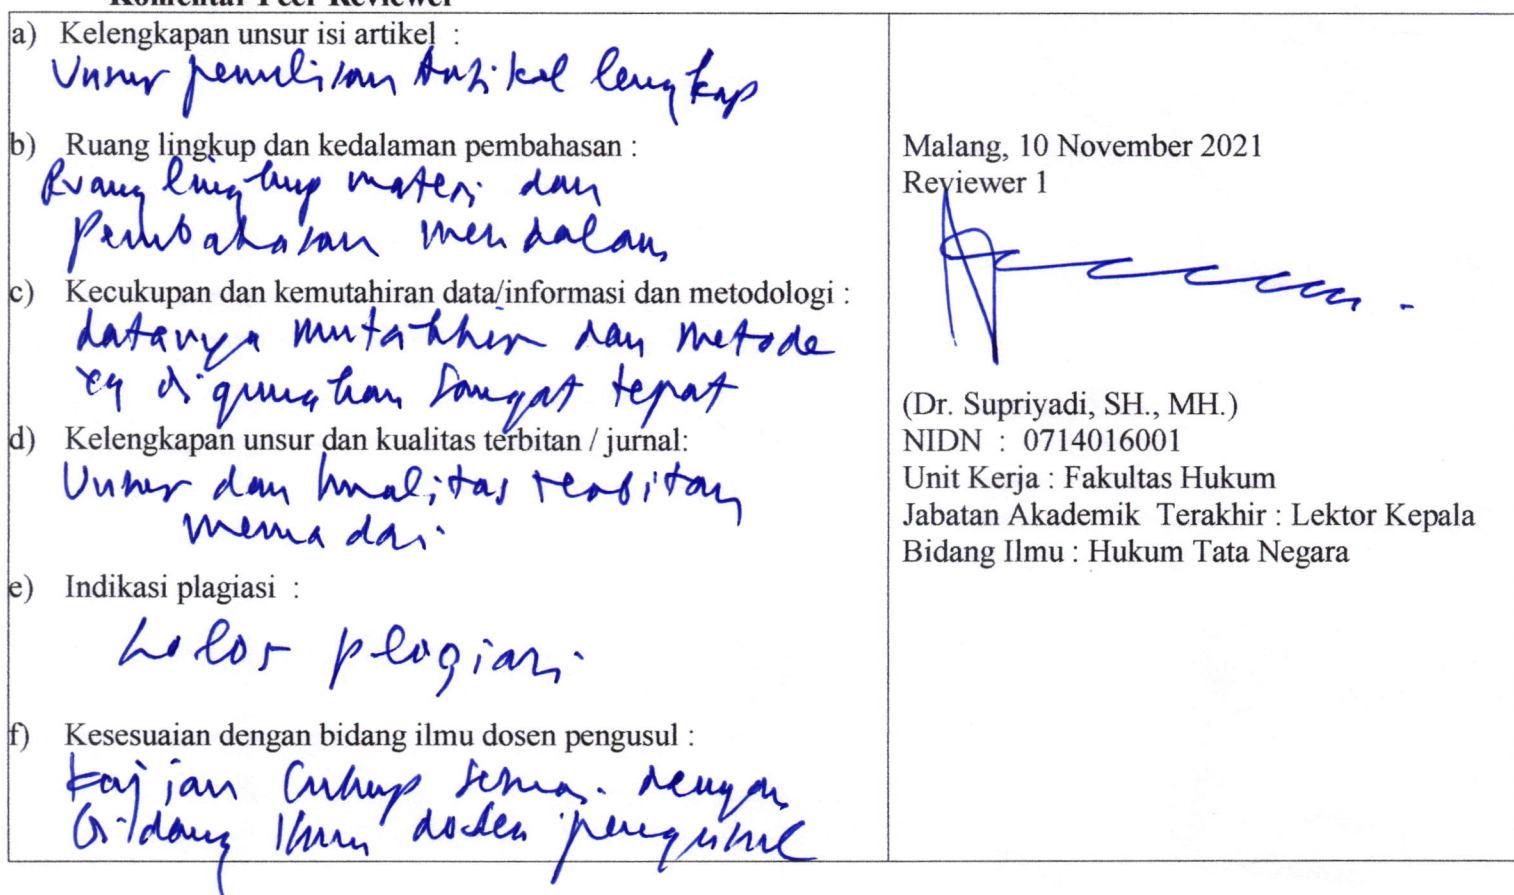 Komentar Peer Reviewer
a) Kelengkapan unsur isi artikel :
Unsur penulisan Artikel lengkap
b) Ruang lingkup dan kedalaman pembahasan :
Ruang lingkup materi dan
Pembahasan mendalam
c) Kecukupan dan kemutahiran data/informasi dan metodologi :
datanya mutakhir dan metode
yg digunakan sangat tepat
d) Kelengkapan unsur dan kualitas terbitan / jurnal:
Unsur dan kualitas terbitan
memadai.
e) Indikasi plagiasi :
Lolos plagiasi.
f) Kesesuaian dengan bidang ilmu dosen pengusul :
Kajian cukup sesuai dengan
bidang ilmu dosen pengusul
Malang, 10 November 2021
Reviewer 1
(Dr. Supriyadi, SH., MH.)
NIDN : 0714016001
Unit Kerja : Fakultas Hukum
Jabatan Akademik Terakhir : Lektor Kepala
Bidang Ilmu : Hukum Tata Negara